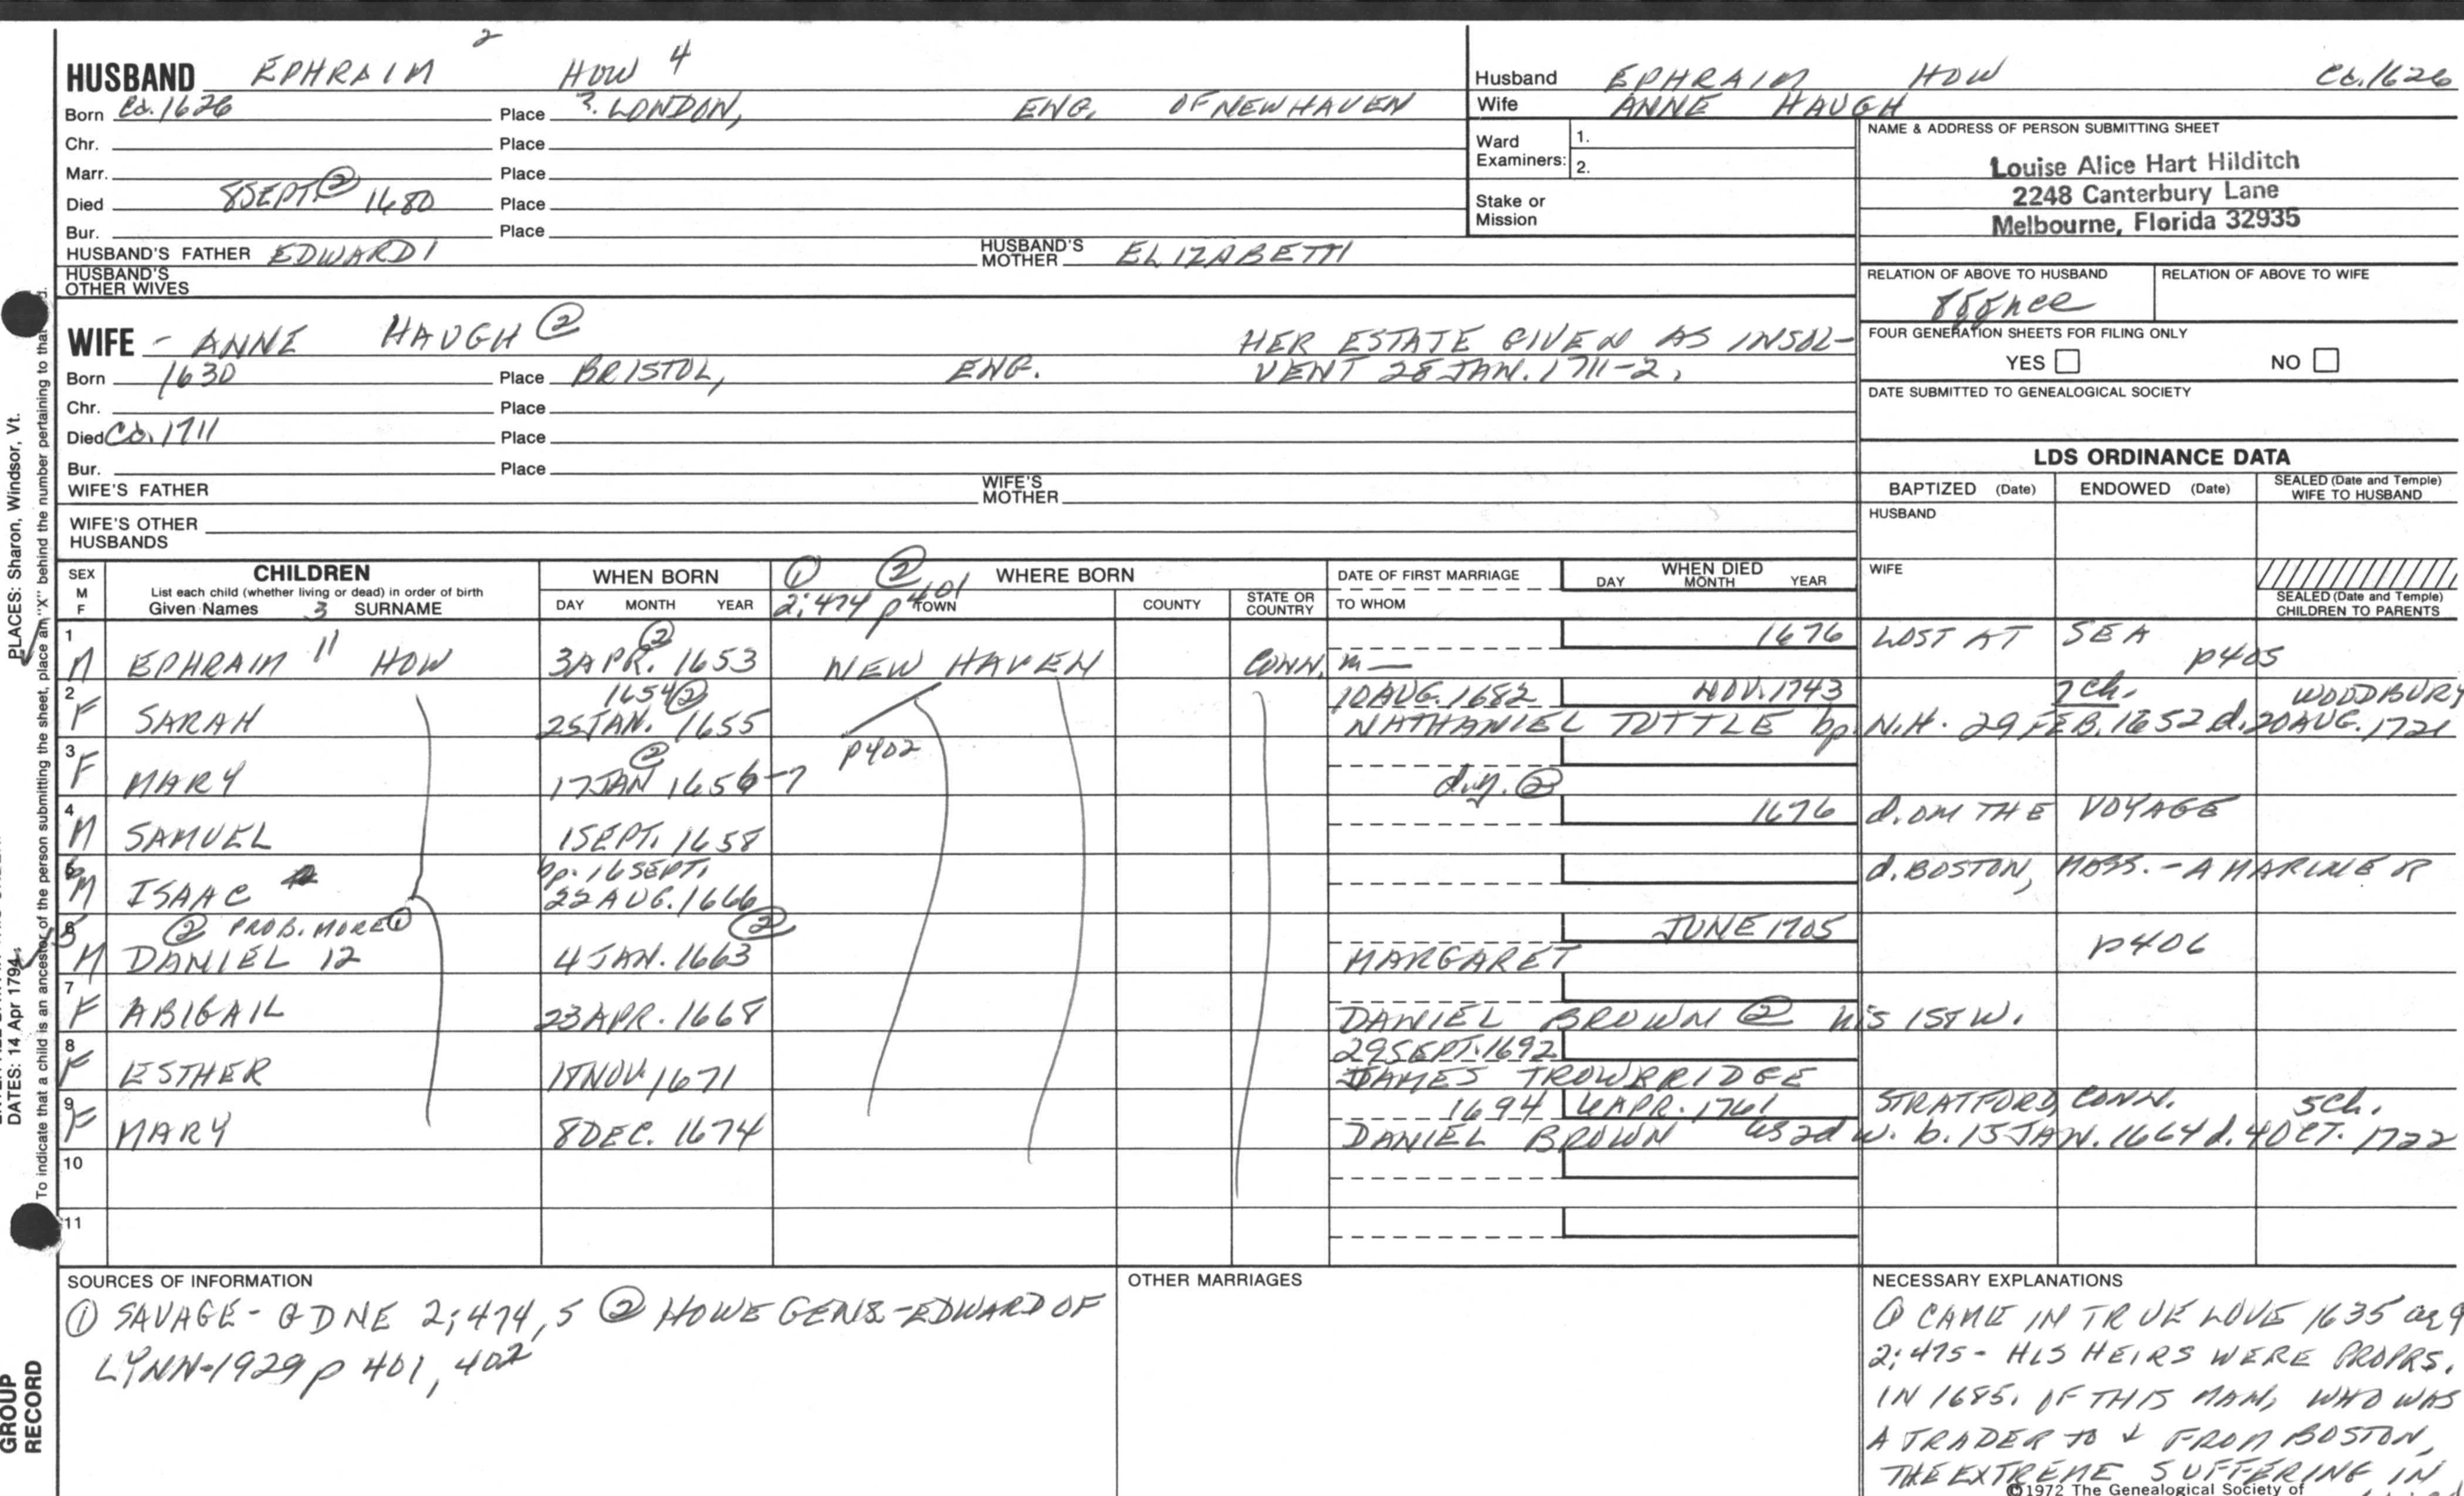 HUSBAND EPHRAIM 2 HOW 4
Born Ca. 1626 Place ?. LONDON, ENG. OF NEW HAVEN
Chr. Place
Marr. Place
Died 8 SEPT. ② 1680 Place
Bur. Place
HUSBAND'S FATHER EDWARD 1 HUSBAND'S MOTHER ELIZABETH
HUSBAND'S OTHER WIVES
WIFE - ANNE HAUGH ② HER ESTATE GIVEN AS INSOL-
Born 1630 Place BRISTOL, ENG. VENT 28 JAN. 1711-2,
Chr. Place
Died Ca. 1711 Place
Bur. Place
WIFE'S FATHER WIFE'S MOTHER
WIFE'S OTHER HUSBANDS
Husband EPHRAIM HOW Ca. 1626
Wife ANNE HAUGH
Ward Examiners: 1.
2.
Stake or Mission
NAME & ADDRESS OF PERSON SUBMITTING SHEET
Louise Alice Hart Hilditch
2248 Canterbury Lane
Melbourne, Florida 32935
RELATION OF ABOVE TO HUSBAND RELATION OF ABOVE TO WIFE
FOUR GENERATION SHEETS FOR FILING ONLY
YES NO
DATE SUBMITTED TO GENEALOGICAL SOCIETY
LDS ORDINANCE DATA
BAPTIZED (Date) ENDOWED (Date) SEALED (Date and Temple) WIFE TO HUSBAND
HUSBAND
WIFE
SEALED (Date and Temple) CHILDREN TO PARENTS
SEX M F CHILDREN List each child (whether living or dead) in order of birth Given Names 3 SURNAME
WHEN BORN DAY MONTH YEAR
① ② 2;474 p 401 WHERE BORN TOWN COUNTY STATE OR COUNTRY
DATE OF FIRST MARRIAGE TO WHOM
WHEN DIED DAY MONTH YEAR
1 M EPHRAIM 11 HOW ② 3 APR. 1653 NEW HAVEN CONN. m — 1676 LOST AT SEA p405
2 F SARAH 1654 ② 25 JAN. 1655 p402 10 AUG. 1682 NOV. 1743 7 ch. WOODBURY
NATHANIEL TUTTLE bp. N.H. 29 FEB. 1652 d. 20 AUG. 1721
3 F MARY ② 17 JAN 1656-7 d.y. ②
4 M SAMUEL 1 SEPT. 1658 1676 d. ON THE VOYAGE
M ISAAC bp. 16 SEPT. 22 AUG. 1666 d. BOSTON, MASS. - A MARINER
② PROB. MORE ①
M DANIEL 12 4 JAN. 1663 ② MARGARET JUNE 1705 p406
7 F ABIGAIL 23 APR. 1668 DANIEL BROWN ② his 1ST W.
8 F ESTHER NOV. 1671 29 SEPT. 1692 JAMES TROWBRIDGE
9 F MARY 8 DEC. 1674 1694 APR. 1761 STRATFORD, CONN. 5 ch.
DANIEL BROWN 2d w. b. 15 JAN. 1664 d. 4 OCT. 1722
10
11
SOURCES OF INFORMATION
① SAVAGE - GDNE 2;474,5 ② HOWE GENS - EDWARD OF
LYNN-1929 p 401, 402
OTHER MARRIAGES
NECESSARY EXPLANATIONS
① CAME IN TRUE LOVE 1635 ae 9
2;475 - HIS HEIRS WERE PROPRS.
IN 1685. OF THIS MAN, WHO WAS
A TRADER TO & FROM BOSTON,
THE EXTREME SUFFERING IN
©1972 The Genealogical Society of
PLACES: Sharon, Windsor, Vt.
DATES: 14 Apr 1794
To indicate that a child is an ancestor of the person submitting the sheet, place an "X" behind the number pertaining to that
GROUP RECORD